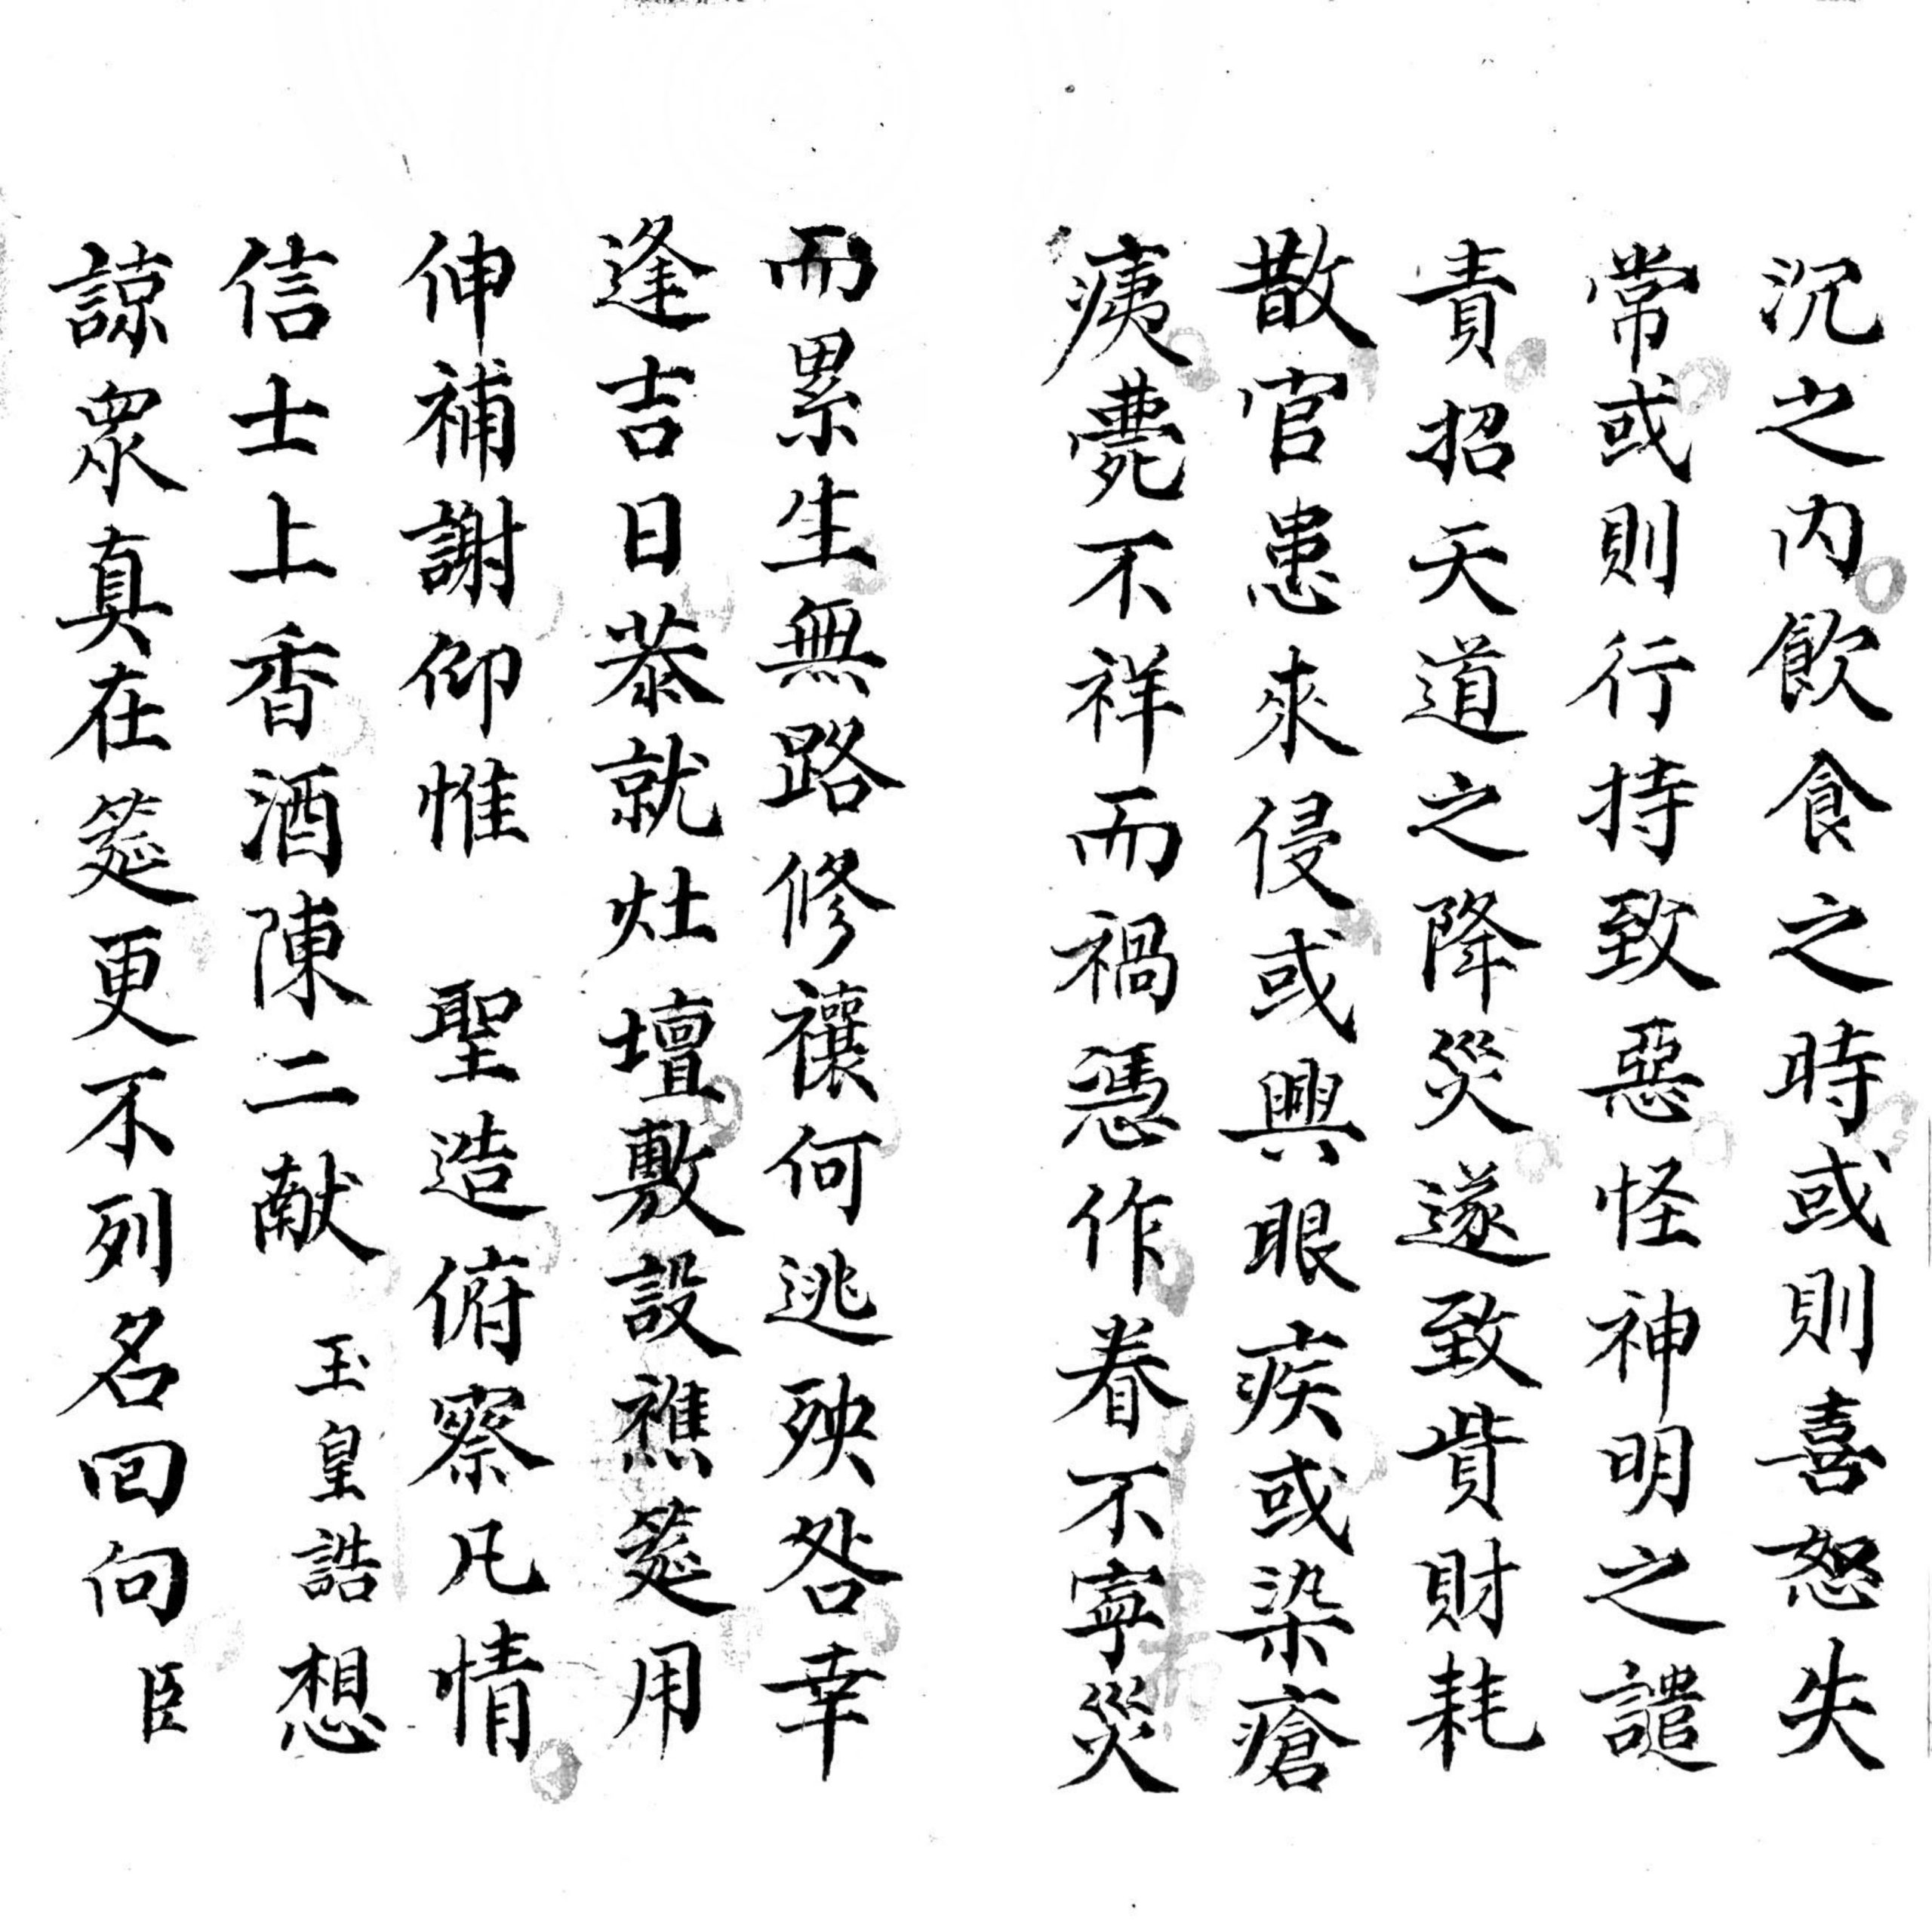 沉之内飲食之時或則喜恕失
常或則行持致惡怪神明之譴
責招天道之降災遂致貲財耗
散官患來侵或興眼疾或染瘡
痍甍不祥而禍慿作眷不寧災
而累生無路修禳何逃殃咎幸
逢吉日恭就灶壇敷設襍筵用
伸補謝仰惟 聖造俯察凡情
信士上香酒陳二献 玉皇誥 想
諒衆真在筵更不列名囬向 臣